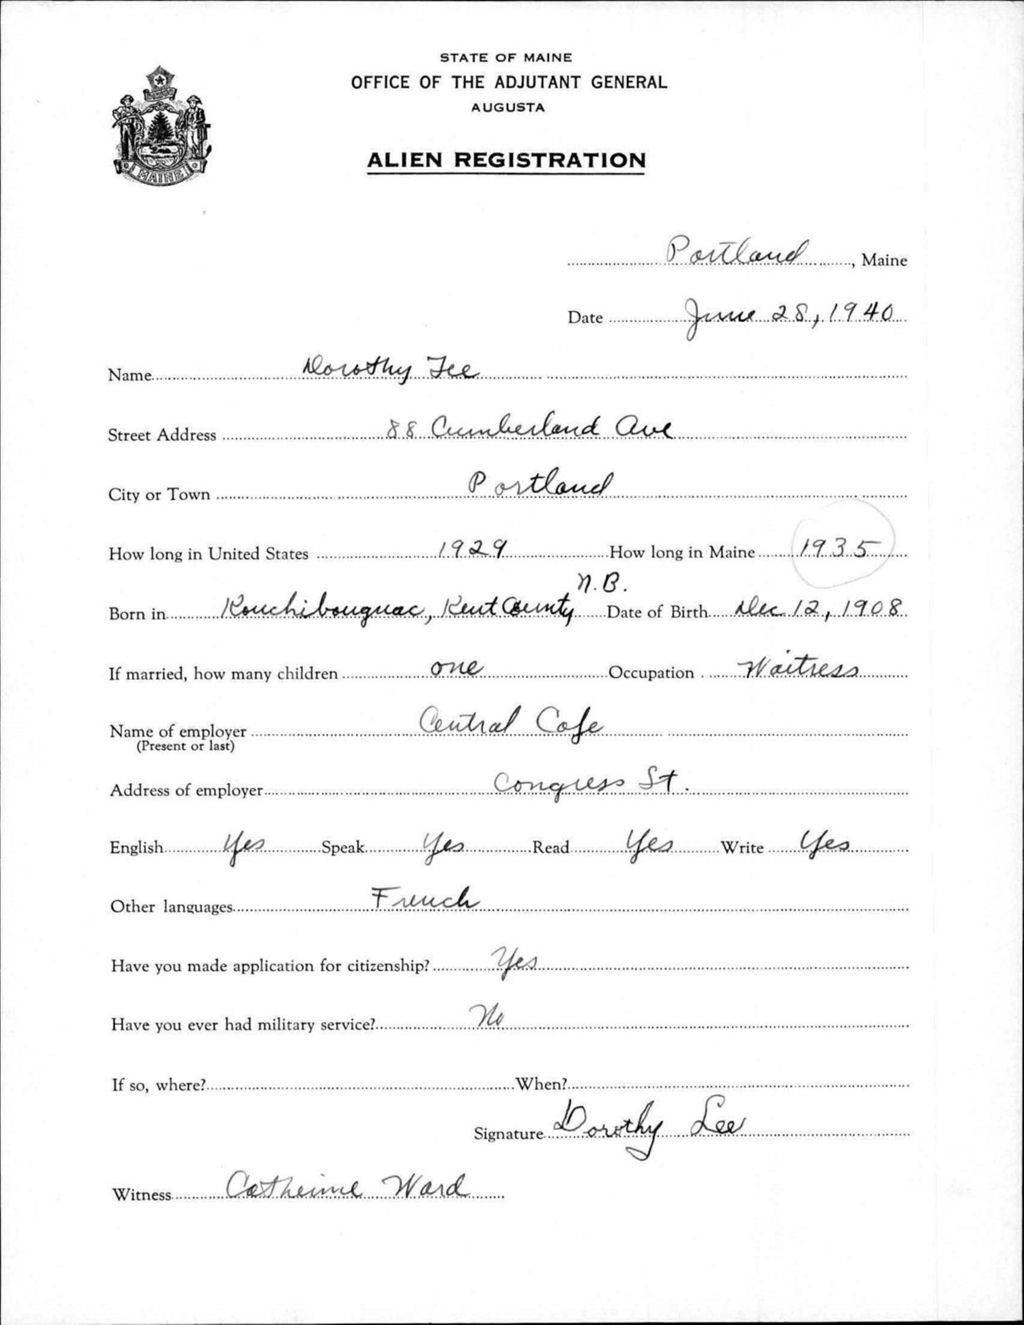 STATE OF MAINE
OFFICE OF THE ADJUTANT GENERAL
AUGUSTA
ALIEN REGISTRATION
MAINE
Portland, Maine
Date June 28, 1940
Name Dorothy Lee
Street Address 88 Cumberland Ave
City or Town Portland
How long in United States 1929 How long in Maine 1935
N.B.
Born in Kouchibouguac, Kent County Date of Birth Dec. 12, 1908
If married, how many children one Occupation Waitress
Name of employer Central Cafe
(Present or last)
Address of employer Congress St.
English Yes Speak Yes Read Yes Write Yes
Other languages French
Have you made application for citizenship? Yes
Have you ever had military service? No
If so, where? When?
Signature Dorothy Lee
Witness Catherine Ward